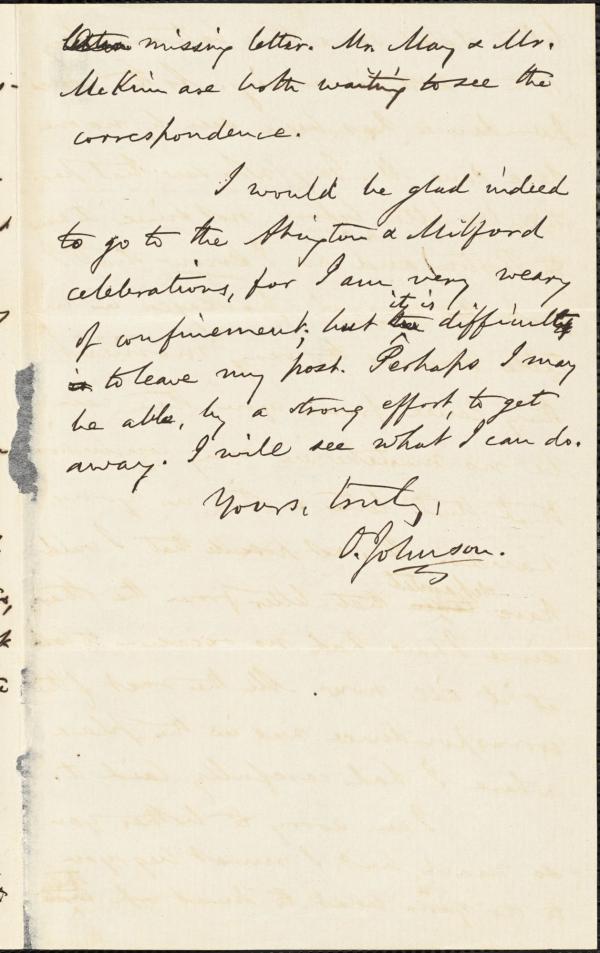 missing letter. Mr. May & Mr.
McKim are both waiting to see the
correspondence.
I would be glad indeed
to go to the Abington & Milford
celebrations, for I am very weary
of confinement; but it is difficult
to leave my post. Perhaps I may
be able, by a strong effort, to get
away. I will see what I can do.
Yours, truly,
O. Johnson.